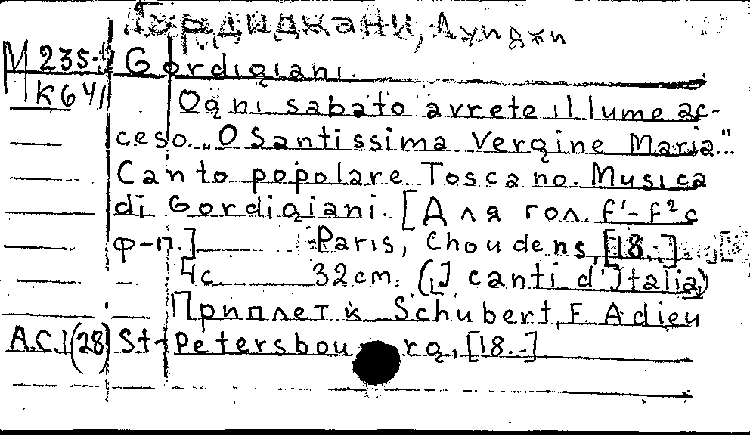 Гордиджани, Луиджи
М 235-2 Gordigiani.
К641 Ogni sabato avrete il lume ac-
ceso. "O Santissima Vergine Maria."
Canto popolare Toscano. Musica
di Gordigiani. [Для гол. f¹-f² с
ф-п.] Paris, Choudens, [18.-].
4с 32cm. (I canti d'Italia)
Приплет к Schubert, F. Adieu
A.C.I (28) St-Petersbourg, [18.-]